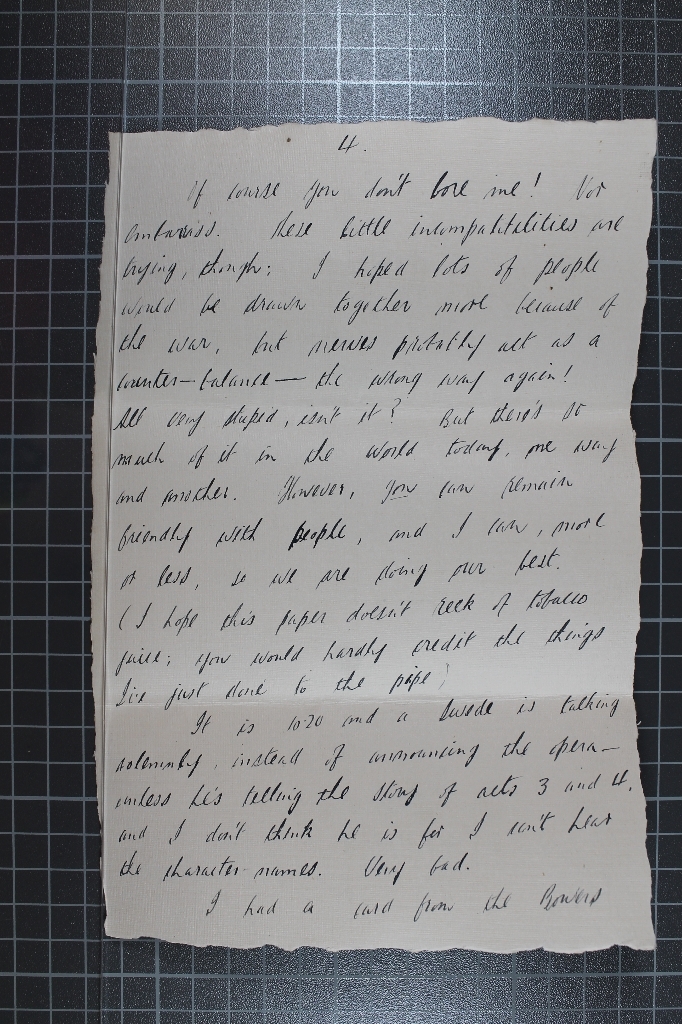 4.
Of course you don't bore me! Nor
embarrass. These little incompatibilities are
trying, though; I hoped lots of people
would be drawn together more because of
the war, but nerves probably act as a
counter-balance — the wrong way again!
All very stupid, isn't it? But there's so
much of it in the world today, one way
and another. However, you can remain
friendly with people, and I can, more
or less, so we are doing our best.
(I hope this paper doesn't reek of tobacco
juice; you would hardly credit the things
I've just done to the pipe)
It is 10.20 and a Swede is talking
solemnly, instead of announcing the opera —
unless he's telling the story of acts 3 and 4,
and I don't think he is for I can't hear
the character-names. Very bad.
I had a card from the Bowers